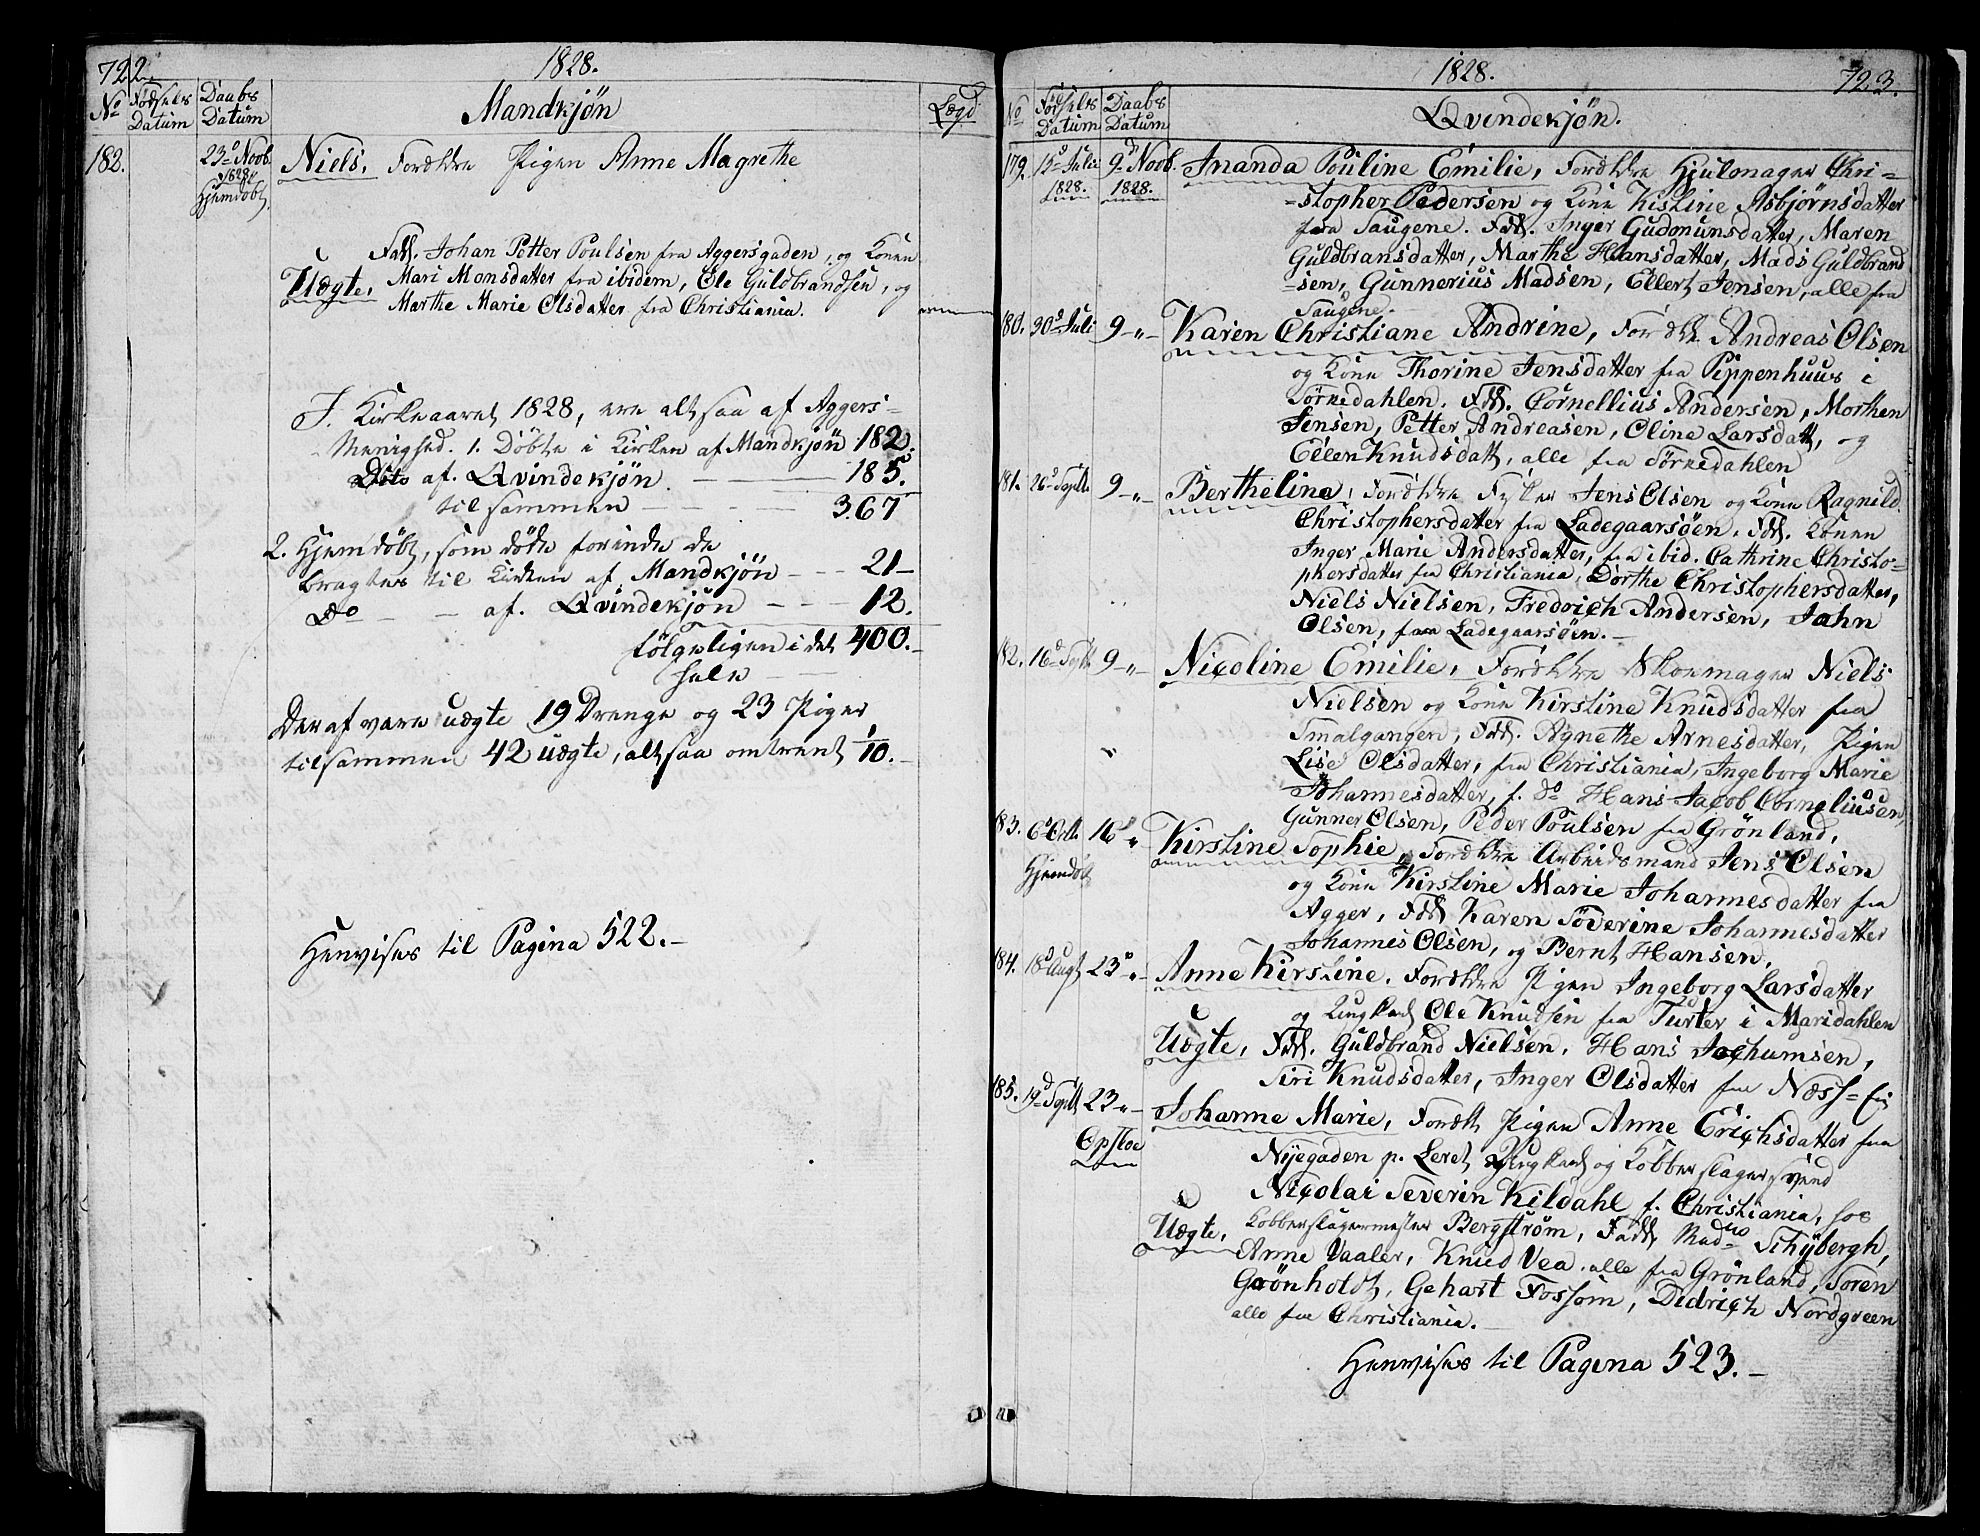 722.
1828.
No
Fødsels Datum
Daabs Datum
Mandkjøn
Lægd
182.
23d Novb. 1828 Hjemdøbt
Niels, Forældre Pigen Anne Magrethe
Fadd. Johan Petter Poulsen fra Aggersgaden, og Konen
Uægte, Mari Monsdatter fra ibidem, Ole Guldbrandsen, og
Marthe Marie Olsdatter fra Christiania.
I Kirkeaaret 1828, ere altsaa af Aggers-
Menighed. 1. Døbte i Kirken af Mandkjøn 182.
Dito af. Qvindekjøn. 185.
tilsammen 367
2. Hjemdøbt, som døde forinde de
bragtes til Kirken af Mandkjøn 21
Do af. Qvindekjøn 12.
følgeligen i det 400.
hele
Deraf vare uægte 19 Drenge og 23 Piger
tilsammen 42 uægte, altsaa omtrent 1/10.
Henvises til Pagina 522.
1828.
723.
No
Fødsels Datum
Daabs Datum
Qvindekjøn.
179. 12d Julii 1828. 9d Novb. 1828. Inanda Pouline Emilie, Forældre Hjulmager Chri-
-stopher Pedersen og Kone Kistine Asbjørnsdatter
fra Saugene. Fadd. Inger Gudmunsdatter, Maren
Guldbransdatter, Marthe Hansdatter, Mads Guldbrand
-sen, Gunnerius Madsen, Ellert Jensen, alle fra
Saugene.
180. 30d Juli 9 Karen Christiane Andrine, Foræld. Andreas Olsen
og Kone Thorine Jensdatter fra Pippenhuus i
Sørkedahlen. Fdd. Cornellius Andersen, Morthen
Jensen, Petter Andreasen, Oline Larsdatt, og
Ellen Knudsdatt, alle fra Sørkedahlen
181. 26d Septb. 9 Bertheline, Forældre Fisker Jens Olsen og Kone Ragnild
Christophersdatter fra Ladegaarsøen. Fdd. Konen
Inger Marie Andersdatter, fra ibid. Cathrine Christo-
phersdatter fra Christiania, Dorthe Christophersdatter,
Niels Nielsen, Fredrich Andersen, John
Olsen, fra Ladegaarsøen.
182. 16d Septb. 9 Nicoline Emilie, Forældre Skoemager Niels
Nielsen og Kone Kirstine Knudsdatter fra
Smalgangen, Fdd. Agnethe Arnesdatter, Pigen
Lise Olsdatter, fra Christiania, Ingeborg Marie
Johannesdatter, f. do Hans Jacob Corneliusen,
Gunner Olsen, Peder Poulsen fra Grønland,
183. 6d Octb. 16 Kirstine Sophie, Forældre Arbeidsmand Jens Olsen
Hjemdøbt og Kone Kirstine Marie Johannesdatter fra
Agger, Fdd Karen Søverine Johannesdatter
Johannes Olsen, og Bernt Hansen.
184. 18d Augt 23d Anne Kirstine. Forældre Pigen Ingeborg Larsdatter
og Ungkarl Ole Knudsen fra Turter i Maridahlen
Uægte, Fdd. Guldbrand Nielsen, Hans Jochumsen,
Siri Knudsdatter, Inger Olsdatter fra Næss-
185. 19d Septb 23 Johanne Marie, Foræld Pigen Anne Erichsdatter fra
Opsloe
Nyegaden p. Leret, Ungkarl og Kobberslagersvend
Nicolai Severin Kildahl f. Christiania, hos
Uægte, Kobberslagermester Bergstrøm, Fadd. Madme Schybergh,
Anne Vaaler, Knud Vea, alle fra Grønland, Søren
Grønholdt, Gehart Fossom, Didrich Nordgreen
alle fra Christiania.
Henvises til Pagina 523.